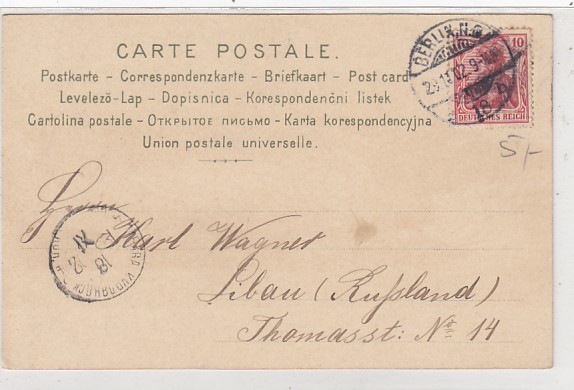 CARTE POSTALE.
Postkarte - Correspondenzkarte - Briefkaart - Post card
Levelező-Lap - Dopisnica - Korespondenčni listek
Cartolina postale - Открытое письмо - Karta korespondencyjna
Union postale universelle.
BERLIN.N.
10
DEUTSCHES REICH
5/-
Herrn
Karl Wagner
Libau (Rußland)
Thomasst: No 14